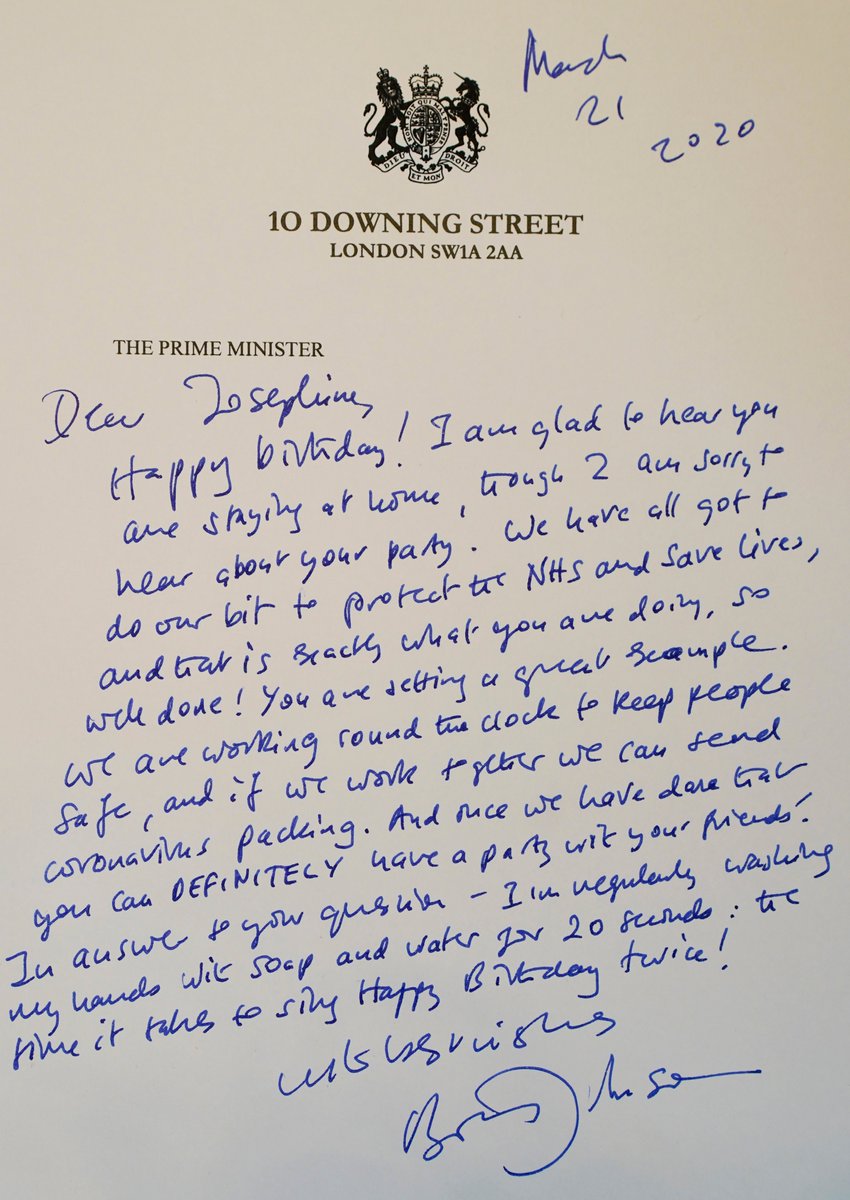 March
21
2020
HONI SOIT QUI MAL Y PENSE
DIEU ET MON DROIT
10 DOWNING STREET
LONDON SW1A 2AA
THE PRIME MINISTER
Dear Josephine,
Happy birthday! I am glad to hear you
are staying at home, though I am sorry to
hear about your party. We have all got to
do our bit to protect the NHS and save lives,
and that is exactly what you are doing, so
well done! You are setting a great example.
We are working round the clock to keep people
safe, and if we work together we can send
coronavirus packing. And once we have done that
you can DEFINITELY have a party with your friends!
In answer to your question – I'm regularly washing
my hands with soap and water for 20 seconds: the
time it takes to sing Happy Birthday twice!
with best wishes
Boris Johnson